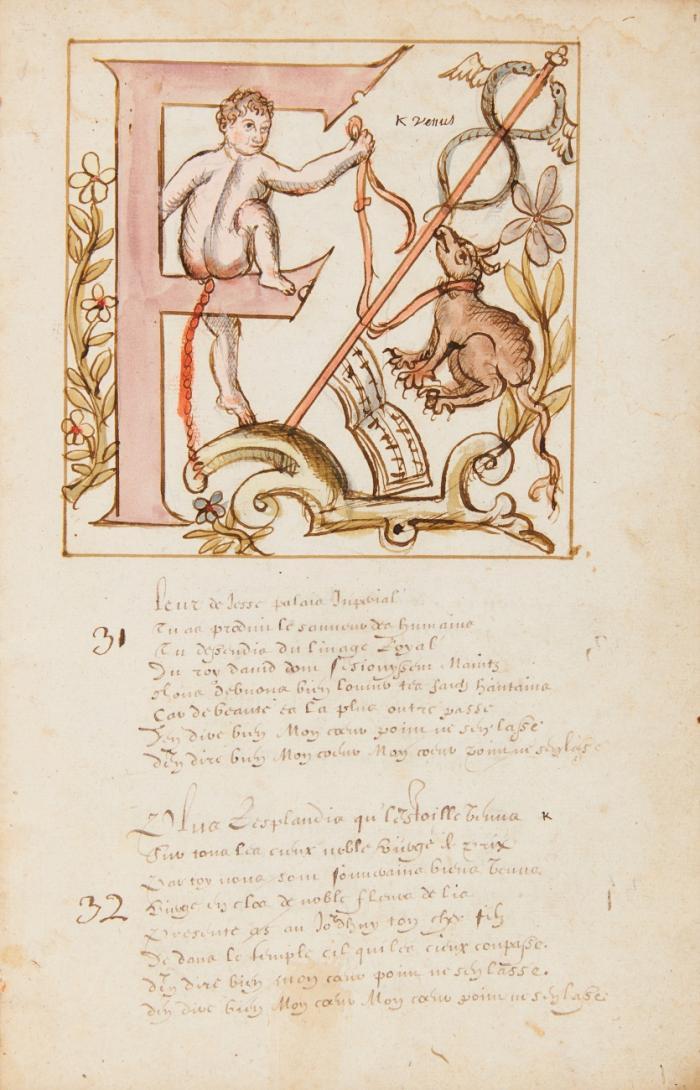 F
K Venus
31
fleur de Jesse palais Imperial
Tu as produit le sauveur des humains
Tu dependis du linage Royal
Du roy david dom
Nous debuons bien louer tes faictz haultains
Car de beaute es la plus oultre passe
Den dire bien Mon cœur point ne sey lasse
Den dire bien Mon coeur Mon coeur point ne sey lasse
Plus Resplandis qu'lestoille venus K
32
Sur tous les cieux noble vierge de prix
Par toy nous som souverains biens venus
Vierge en clos de noble fleurs de lis
Presente as au Jourdhuy ton cher filz
De dans le temple cil qui les cieux conpasse.
Den dire bien mon cœur point ne sey lasse.
Den dire bien Mon cœur Mon cœur point ne sey lasse